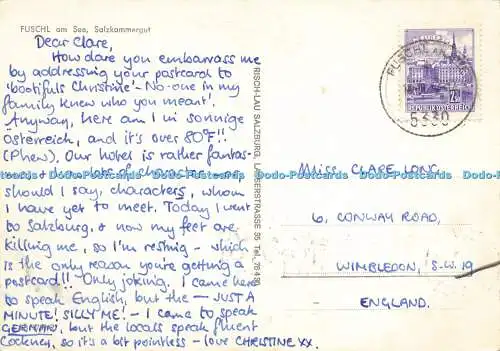 FUSCHL am See, Salzkammergut
Dear Clare,
How dare you embarrass me
by addressing your postcard to
'bootifuls Christine' - No-one in my
family knew who you meant!
Anyway, here am I in sonnige
Österreich, and it's over 80°F!!
(Phew). Our hotel is rather fantas-
lots of characters - or
should I say, characters, whom
I have yet to meet. Today I went
to Salzburg, & now my feet are
killing me, so I'm resting - which
is the only reason you're getting a
postcard!! Only joking. I came here
to speak English, but the - JUST A
MINUTE! SILLY ME! - I came to speak
GERMAN, but the locals speak fluent
Cockney, so it's a bit pointless - love CHRISTINE XX.
RISCH-LAU SALZBURG
FUSCHL AM SEE
5330
REPUBLIK ÖSTERREICH
MISS CLARE LONG,
6, CONWAY ROAD,
WIMBLEDON, S.W. 19
ENGLAND.
Dodo-Postcards Dodo-Postcards Dodo-Postcards Dodo-Postcards